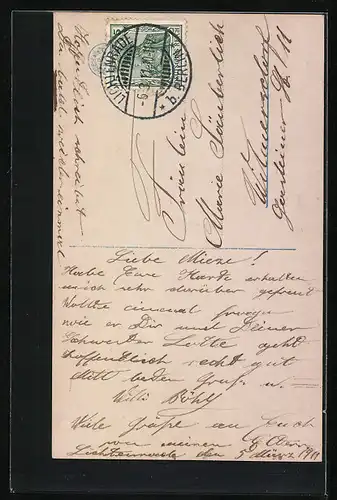 Fräulein
Marie Säuberlich
Wilmersdorf
Gasteiner Str 11
LICHTENRADE
* b. BERLIN
Hoffentlich schreibst
Du bald wieder einmal
Liebe Mieze!
Habe Eure Karte erhalten
mich sehr darüber gefreut
Wollte einmal fragen
wie es Dir und Deiner
Schwester Lotte geht
Hoffentlich recht gut
Mit besten Gruß u.
Willi Böhlf
Viele Grüße an Euch
von meinen Eltern
Lichtenrade den 5 März 1911